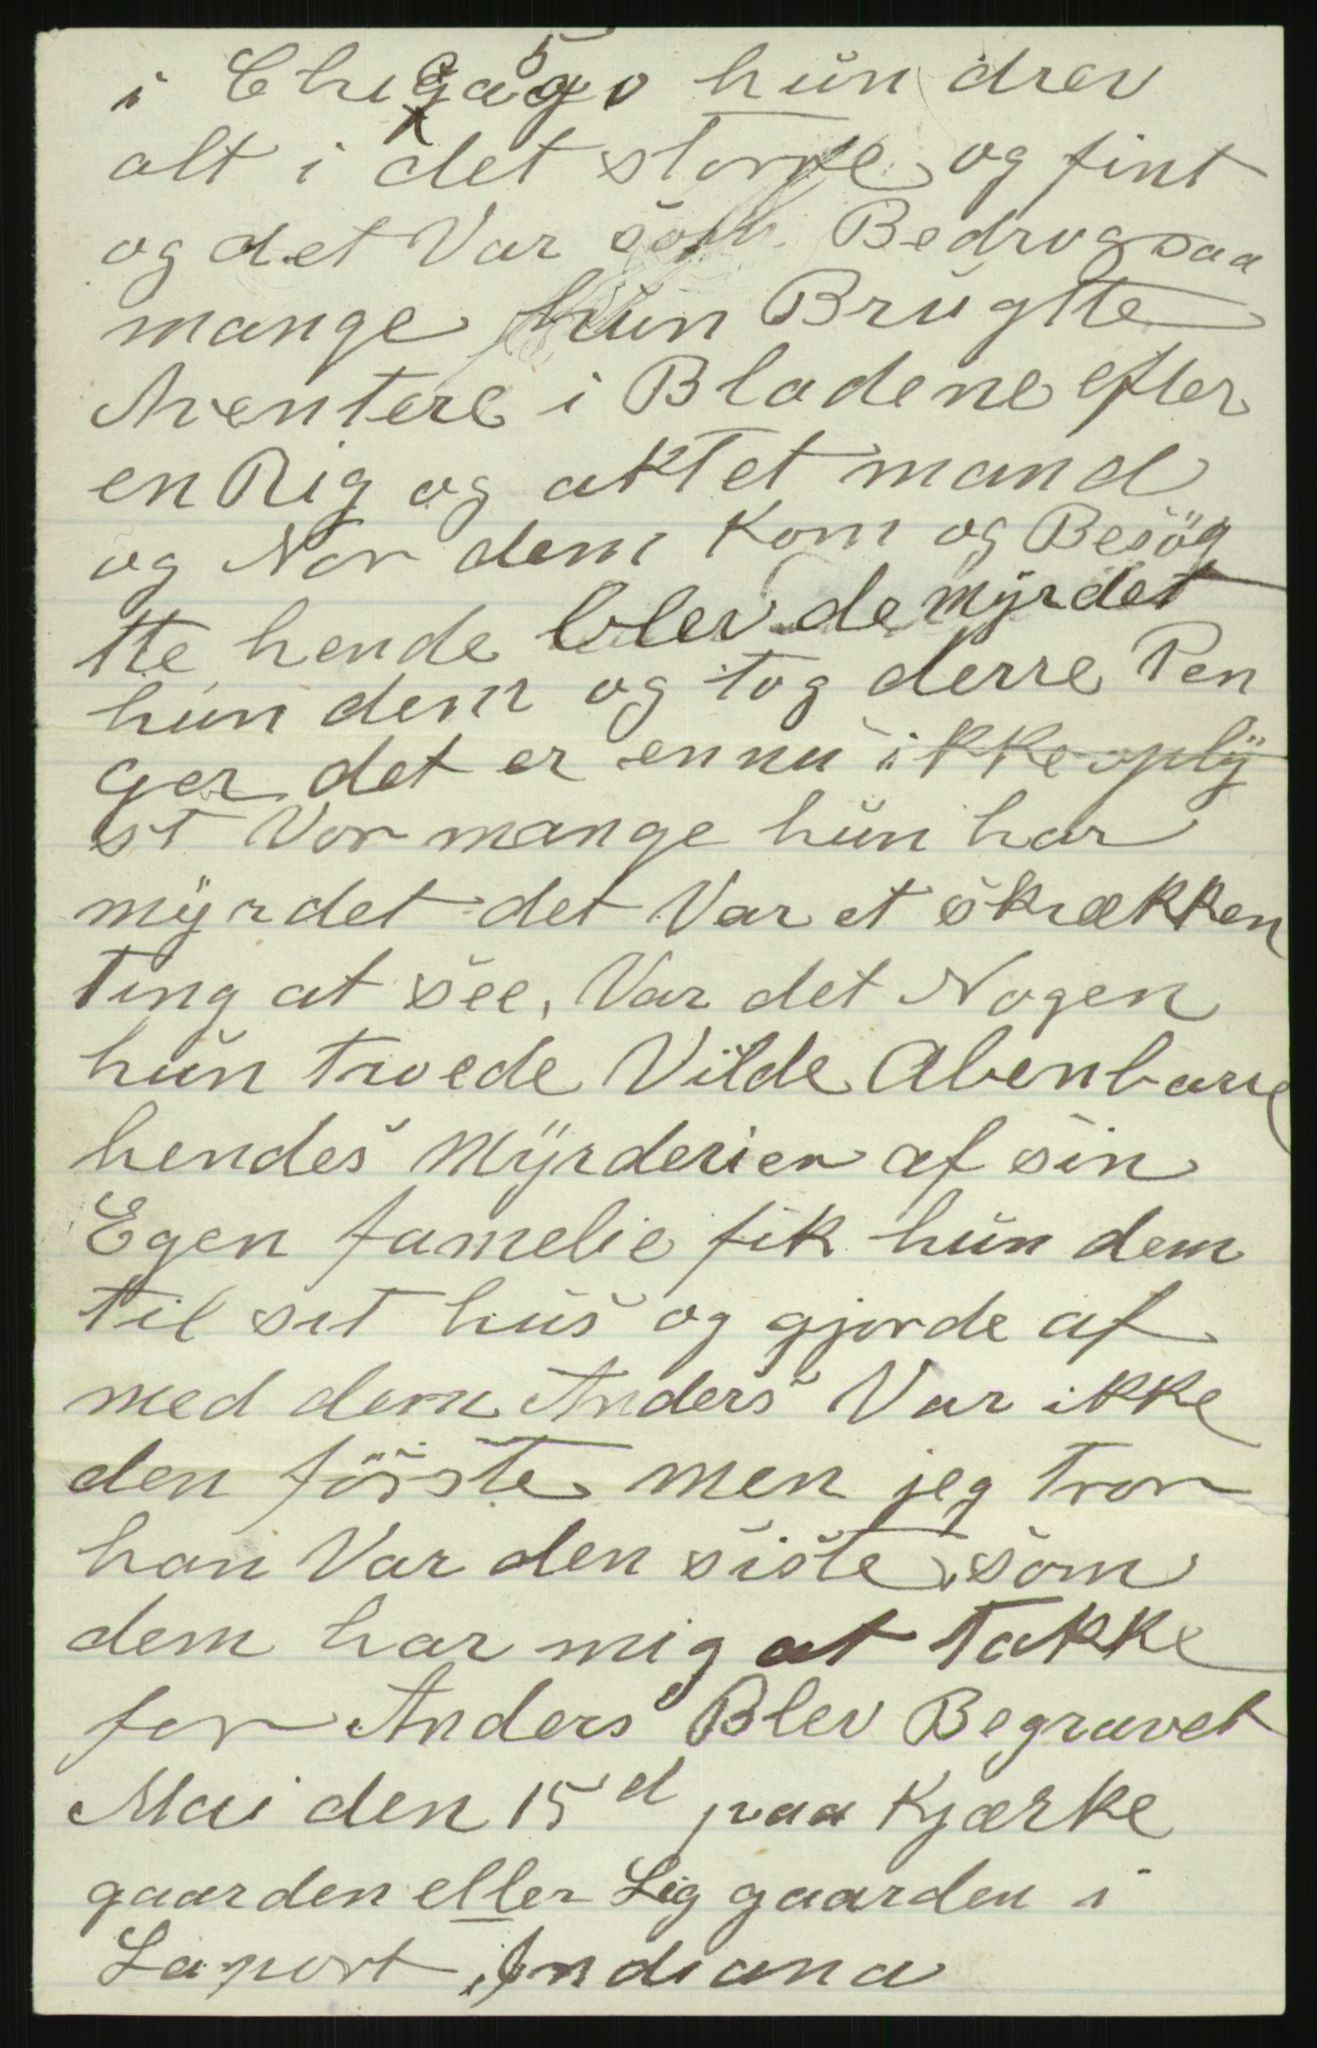 i Chicago hun drev
5
alt i det store og fint
og det Var som Bedrog saa
mange hun Brugtte
Aventere i Bladene efter
en Rig og aktet mand
og Nor dem Kom og Besög
tte hende blev de myrdet
hun dem og tog derre Pen
ger det er ennu ikke oplÿ
st Vor mange hun har
mÿrdet det Var et skrækken
Ting at see, Var det Nogen
hun troede Vilde Abenbare
hendes Mÿrderier af sin
Egen famelie fik hun dem
til sit hus og gjorde af
med dem Anders Var ikke
den förste men jeg tror
han Var den siste, som
dem har mig at Takke
for Anders Blev Begravet
Mai den 15d paa Kjærke
gaarden eller Lig gaarden i
Laport, Indiana